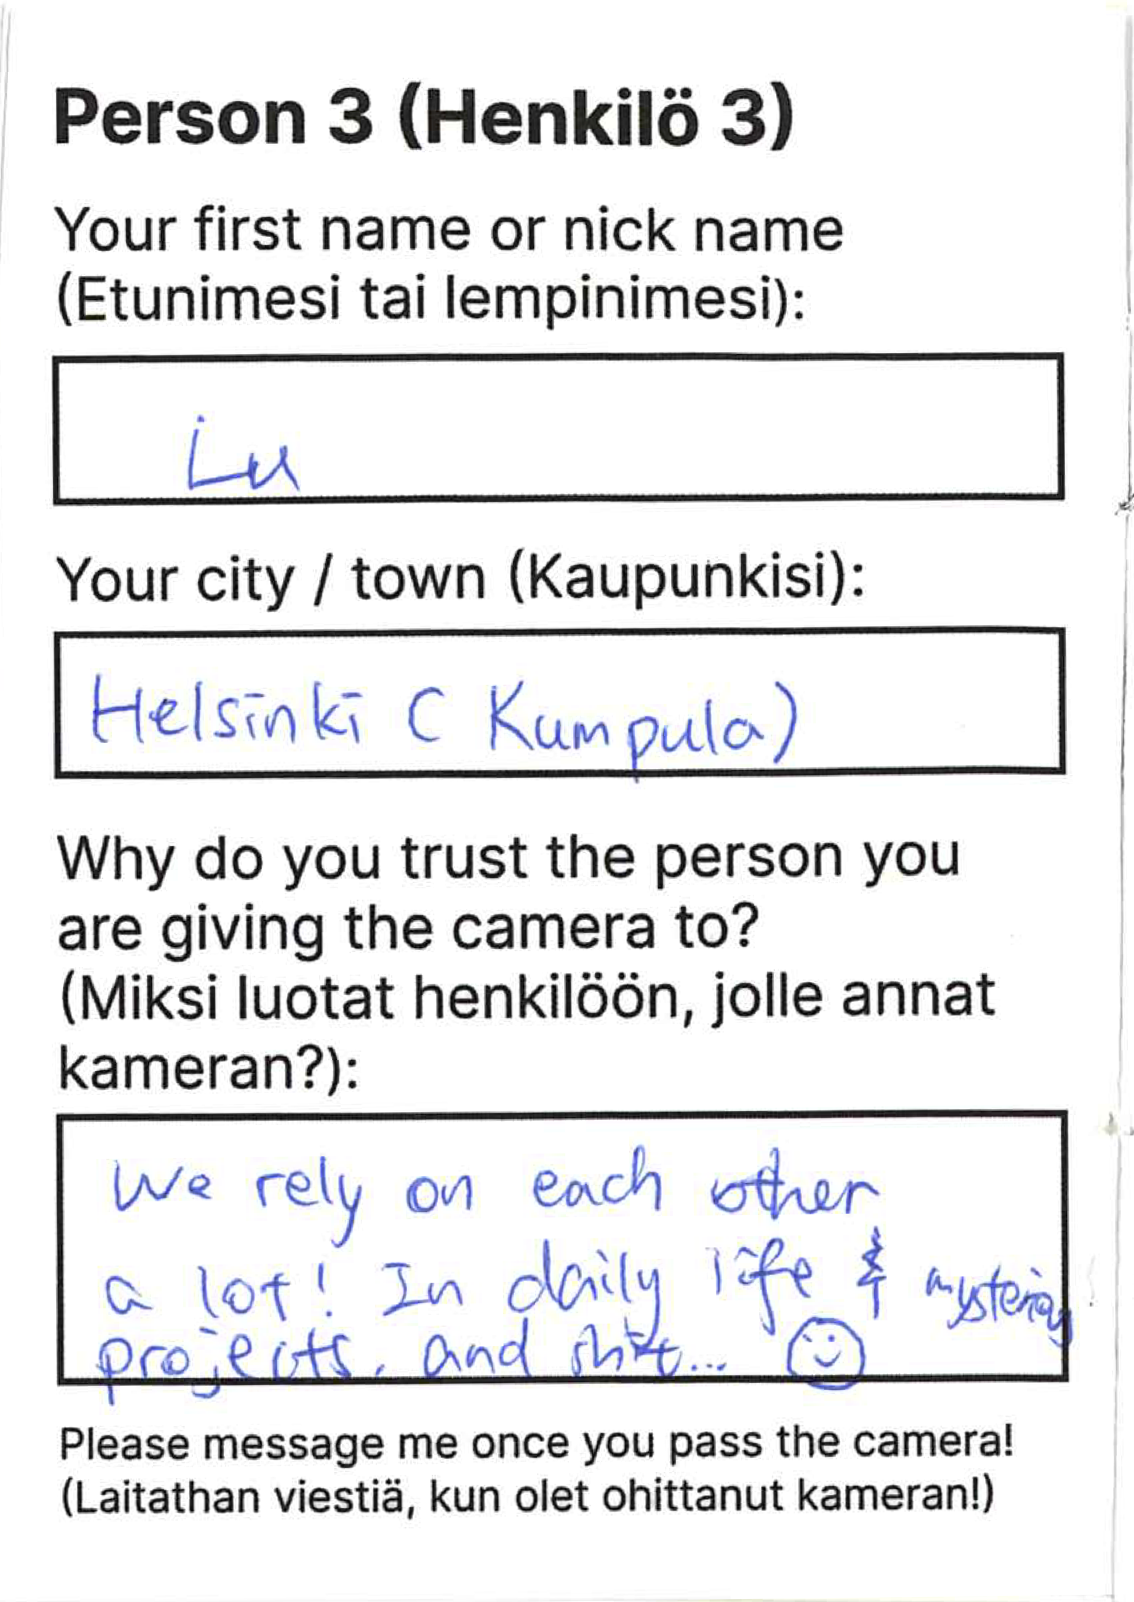 Person 3 (Henkilö 3)
Your first name or nick name
(Etunimesi tai lempinimesi):
Lu
Your city / town (Kaupunkisi):
Helsinki (Kumpula)
Why do you trust the person you
are giving the camera to?
(Miksi luotat henkilöön, jolle annat
kameran?):
We rely on each other
a lot! In daily life &
projects, and shit...
Please message me once you pass the camera!
(Laitathan viestiä, kun olet ohittanut kameran!)